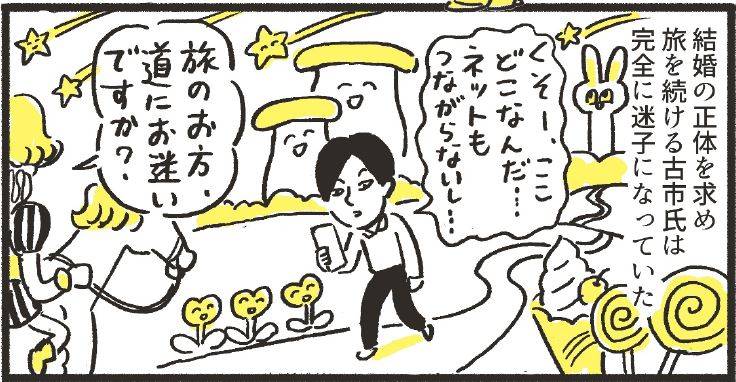 結婚の正体を求め
旅を続ける古市氏は
完全に迷子になっていた
くそー、ここ
どこなんだ…
ネットも
つながらないし…
旅のお方、
道にお迷い
ですか？